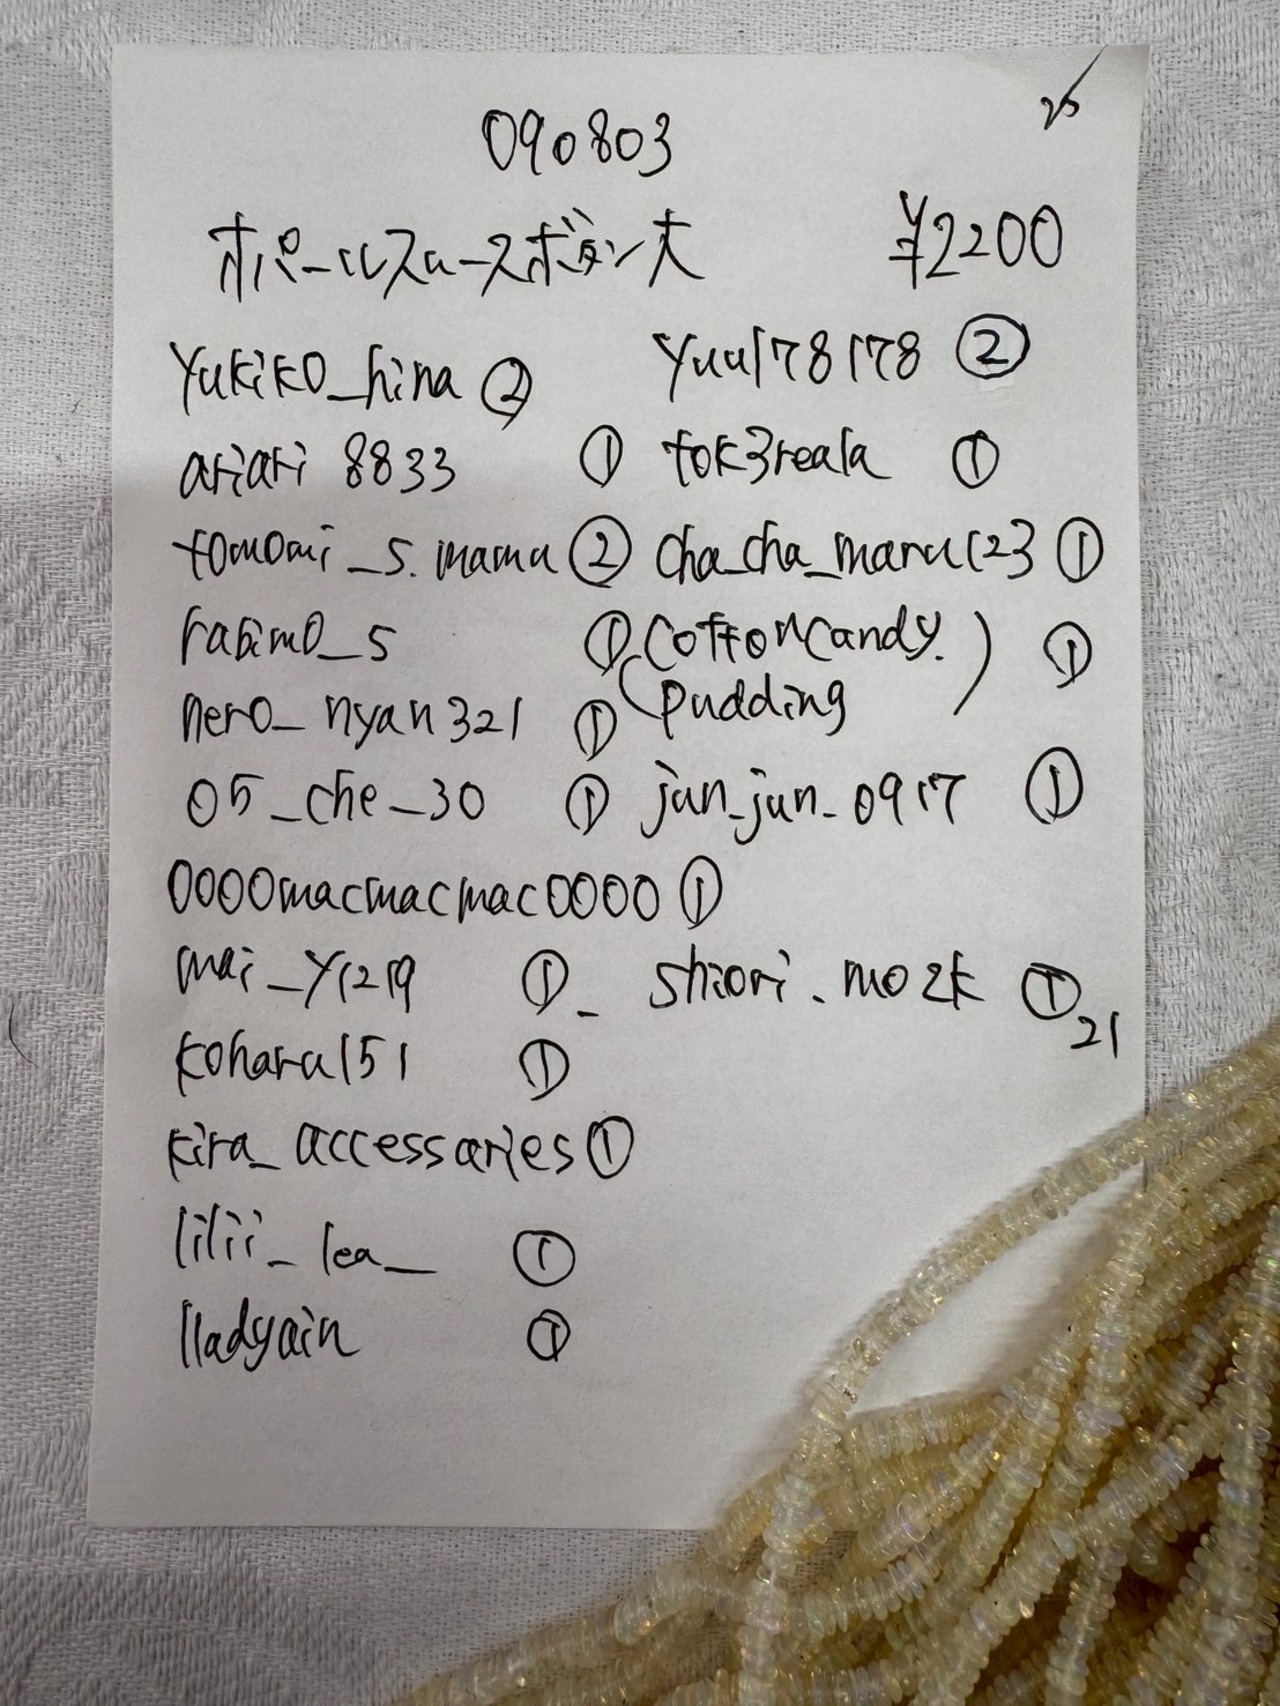 25
090803
オパールスムースボタン大 ¥2200
yukiko_hina ② yuu178178 ②
ariari8833 ① tok3reala ①
tomomi_s.mama ② cha_cha_maru123 ①
rabimo_5 ① (cottoncandy.
pudding) ①
nero_nyan321 ①
05_che_30 ① jun_jun_0917 ①
0000macmacmac0000 ①
mai_y1219 ① shiori.mozk ①
21
koharu151 ①
kira_accessaries ①
lilii_lea_ ①
lladyain ①